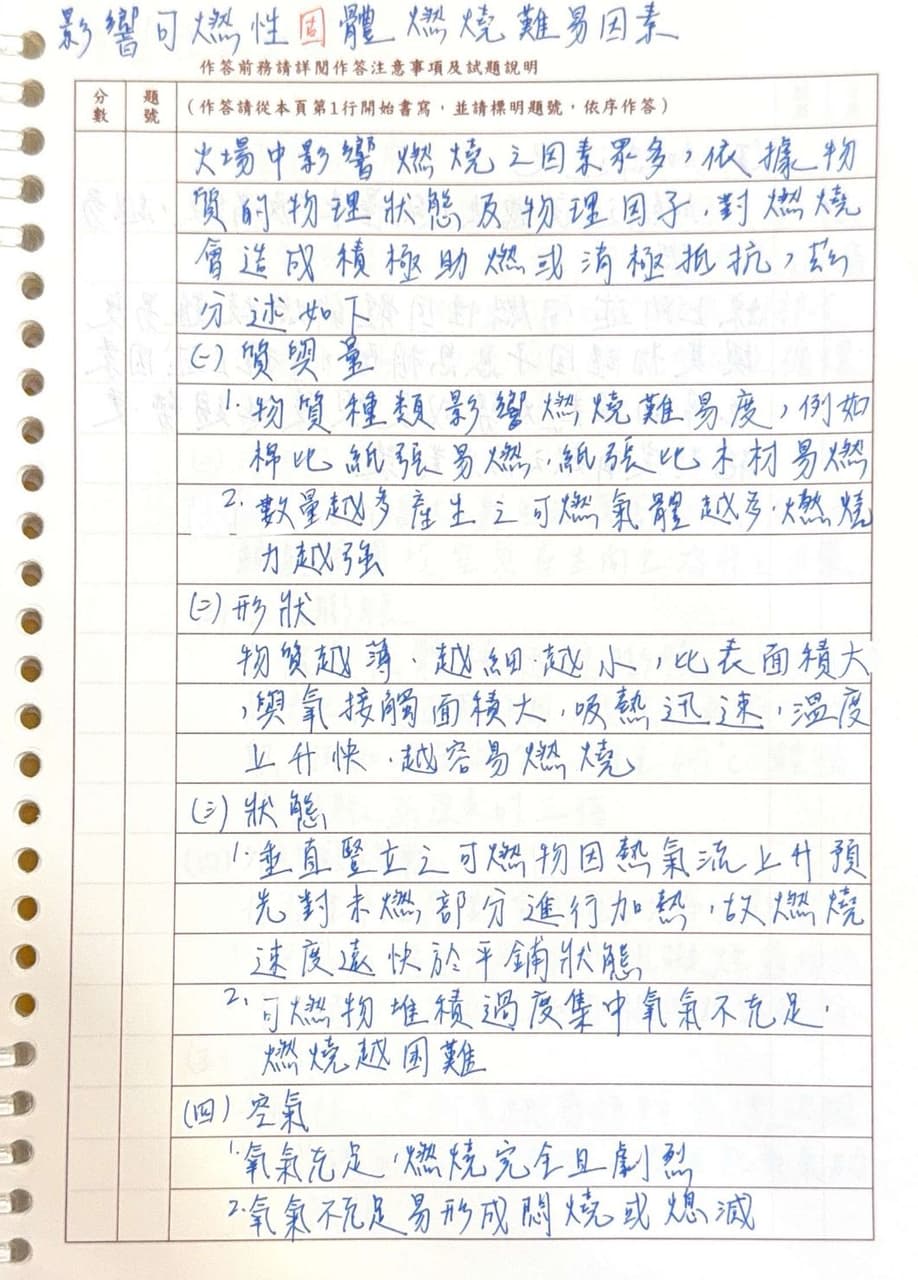 影響可燃性固體燃燒難易因素
作答前務請詳閱作答注意事項及試題說明
分數
題號
(作答請從本頁第1行開始書寫，並請標明題號，依序作答)
火場中影響燃燒之因素眾多，依據物
質的物理狀態及物理因子，對燃燒
會造成積極助燃或消極抵抗，茲
分述如下
(一)質與量
1.物質種類影響燃燒難易度，例如
棉比紙張易燃，紙張比木材易燃
2.數量越多產生之可燃氣體越多，燃燒
力越強
(二)形狀
物質越薄、越細、越小，比表面積大
，與氧接觸面積大，吸熱迅速，溫度
上升快，越容易燃燒
(三)狀態
1.垂直豎立之可燃物因熱氣流上升預
先對未燃部分進行加熱，故燃燒
速度遠快於平鋪狀態
2.可燃物堆積過度集中氧氣不充足，
燃燒越困難
(四)空氣
1.氧氣充足，燃燒完全且劇烈
2.氧氣不充足易形成悶燒或熄滅